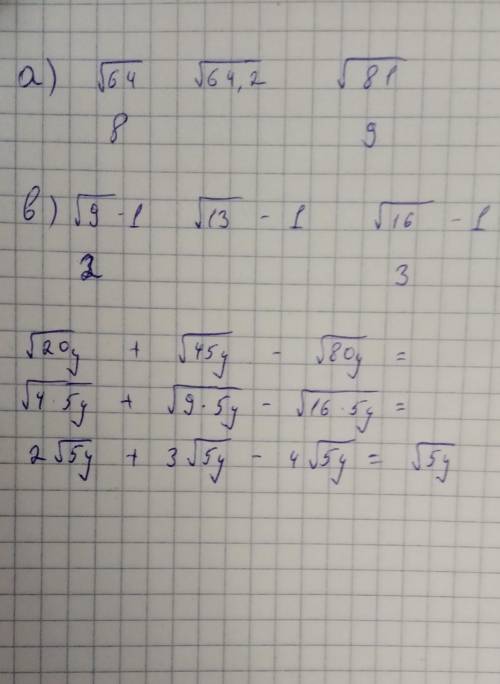 а) √64 √64,2 √81
8 9
в) √9 - 1 √13 - 1 √16 - 1
2 3
√20y + √45y - √80y =
√4·5y + √9·5y - √16·5y =
2√5y + 3√5y - 4√5y = √5y